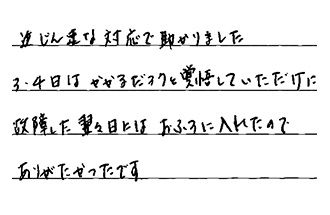 迅じん速な対応で助かりました
3.4日はかかるだろうと覚悟していただけに
故障した翌々日にはおふろに入れたので
ありがたかったです